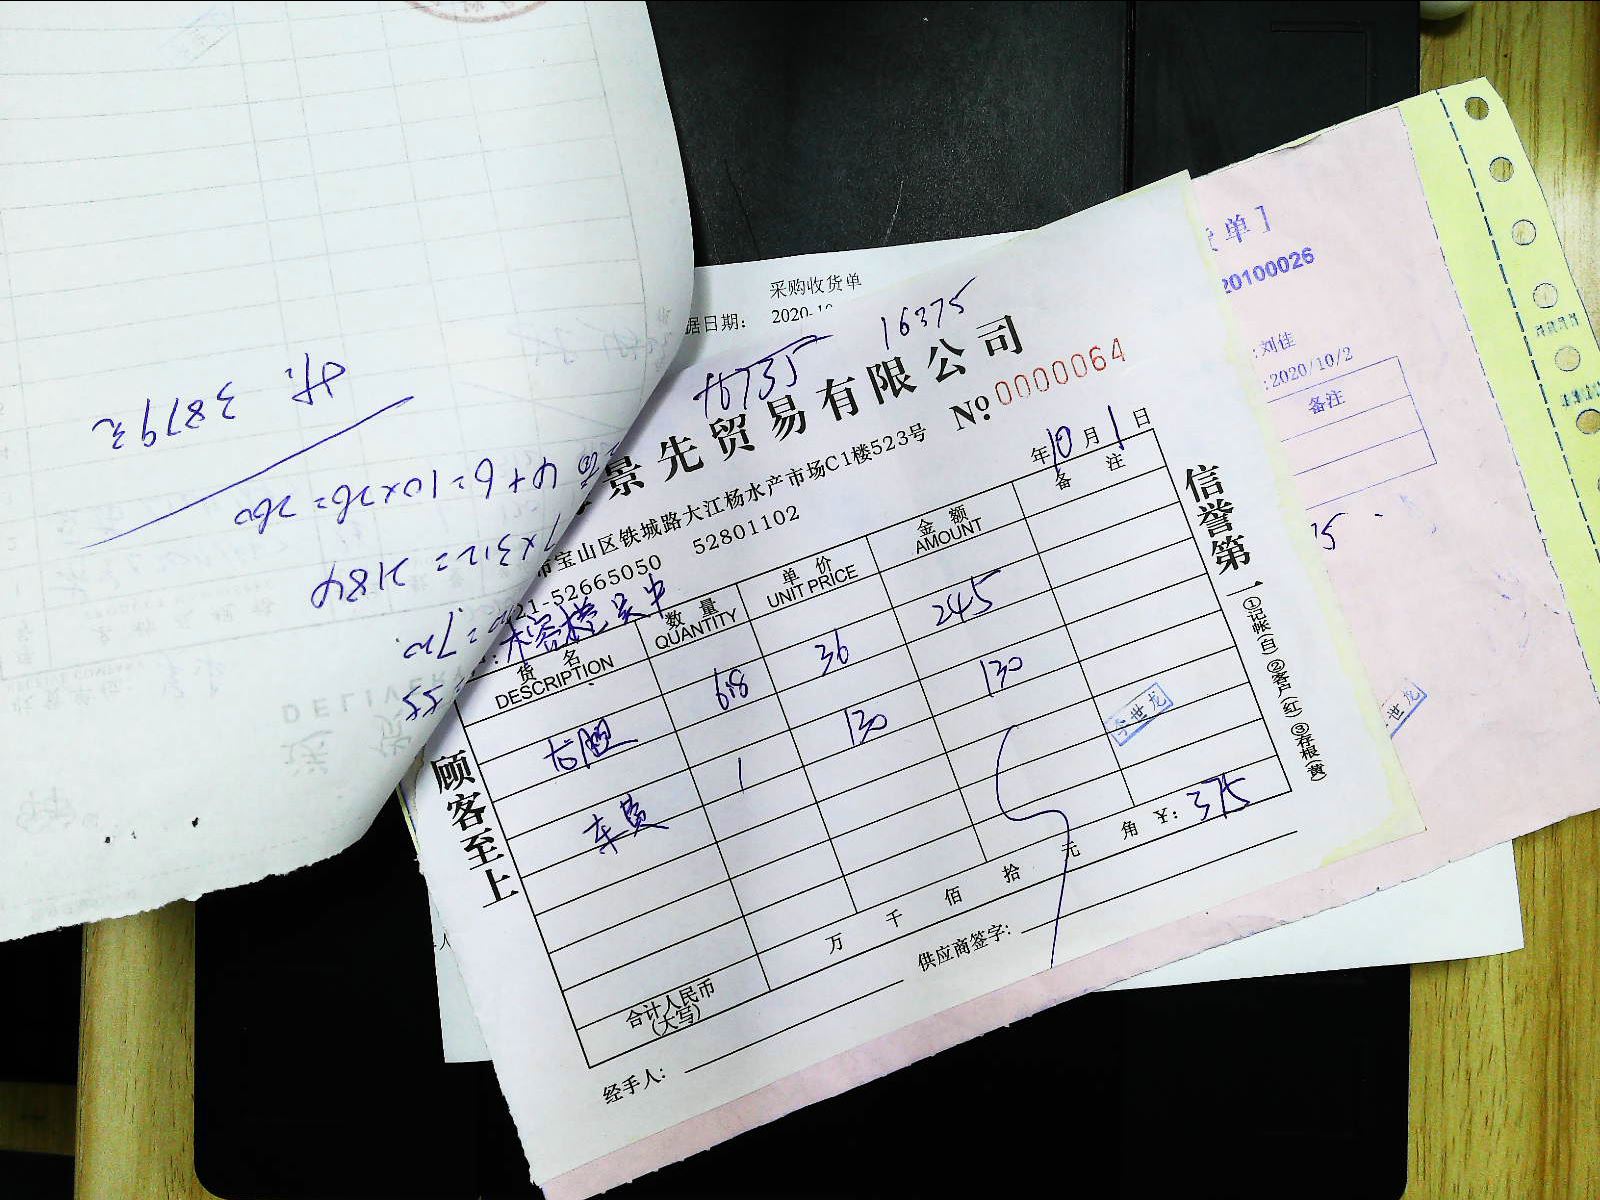 采购收货单
据日期： 2020-10
16735
16375
景先贸易有限公司
No 0000064
市宝山区铁城路大江杨水产市场C1楼523号
021-52665050 52801102
年10月1日
货名 DESCRIPTION
数量 QUANTITY
单价 UNIT PRICE
金额 AMOUNT
备注
68 36 245
车费 1 130 130
合计人民币(大写)
万 千 佰 拾 元 角 ¥: 375
经手人:
供应商签字:
顾客至上
信誉第一
①记帐(白)②客户(红)③存根(黄)
李世龙
单]
20100026
:刘佳
:2020/10/2
备注
世龙
=55
=720
7×312=2184
4+6=10×26=260
共: 3879元
DELIVER